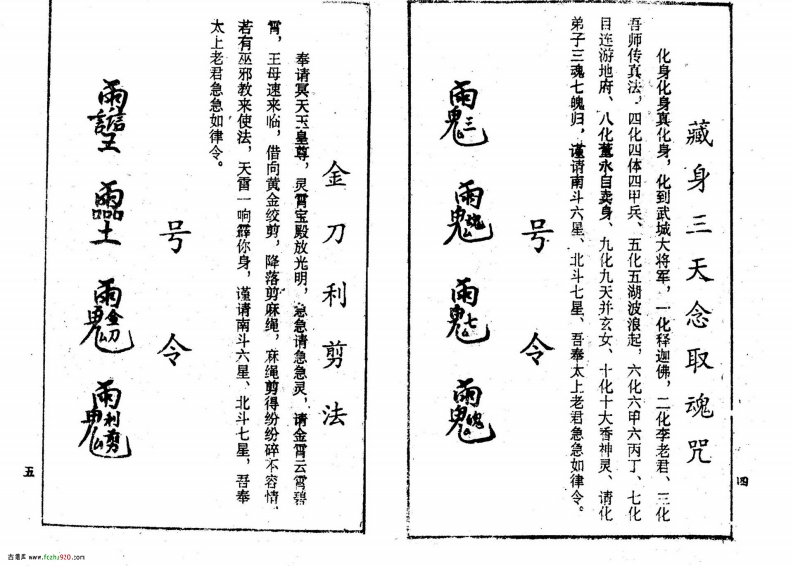 藏身三天念取魂咒
化身化身真化身，化到武城大将军，一化释迦佛，二化李老君、三化
吾师传真法，四化四体四甲兵、五化五湖波浪起，六化六甲六丙丁、七化
目连游地府、八化董永自卖身、九化九天并玄女、十化十大香神灵、请化
弟子三魂七魄归，谨请南斗六星、北斗七星、吾奉太上老君急急如律令。
号令
四
金刀利剪法
奉请冥天玉皇尊，灵霄宝殿放光明，急急请急急灵，请金霄云霄碧
霄，王母速来临，借向黄金绞剪，降落剪麻绳，麻绳剪得纷纷碎不容情，
若有巫邪教来使法，天雷一响霹你身，谨请南斗六星、北斗七星，吾奉
太上老君急急如律令。
号令
五
古籍库 www.fczhu920.com